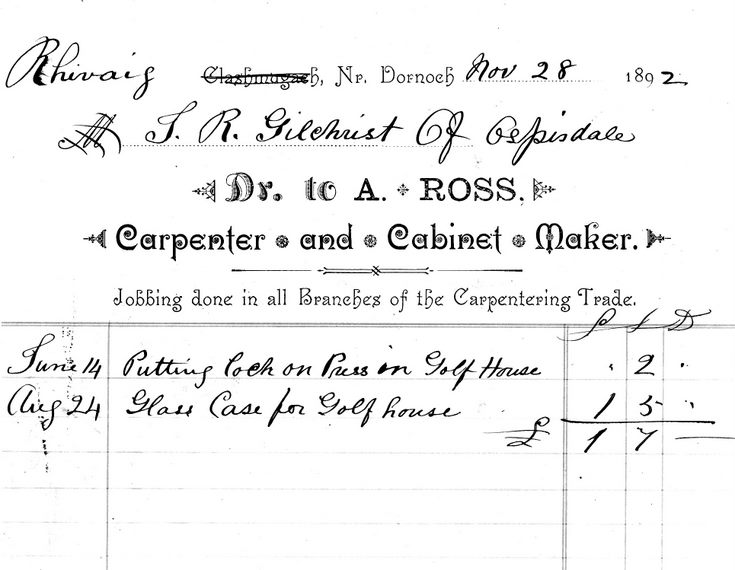 Rhivaig Clashmugach, Nr. Dornoch Nov 28 1892
M T. R. Gilchrist Of Ospisdale
Dr. to A. ROSS,
Carpenter and Cabinet Maker.
Jobbing done in all Branches of the Carpentering Trade.
£ S D
June 14 Putting lock on Press in Golf House " 2 "
Aug 24 Glass Case for Golf house 1 5 "
£ 1 7 —